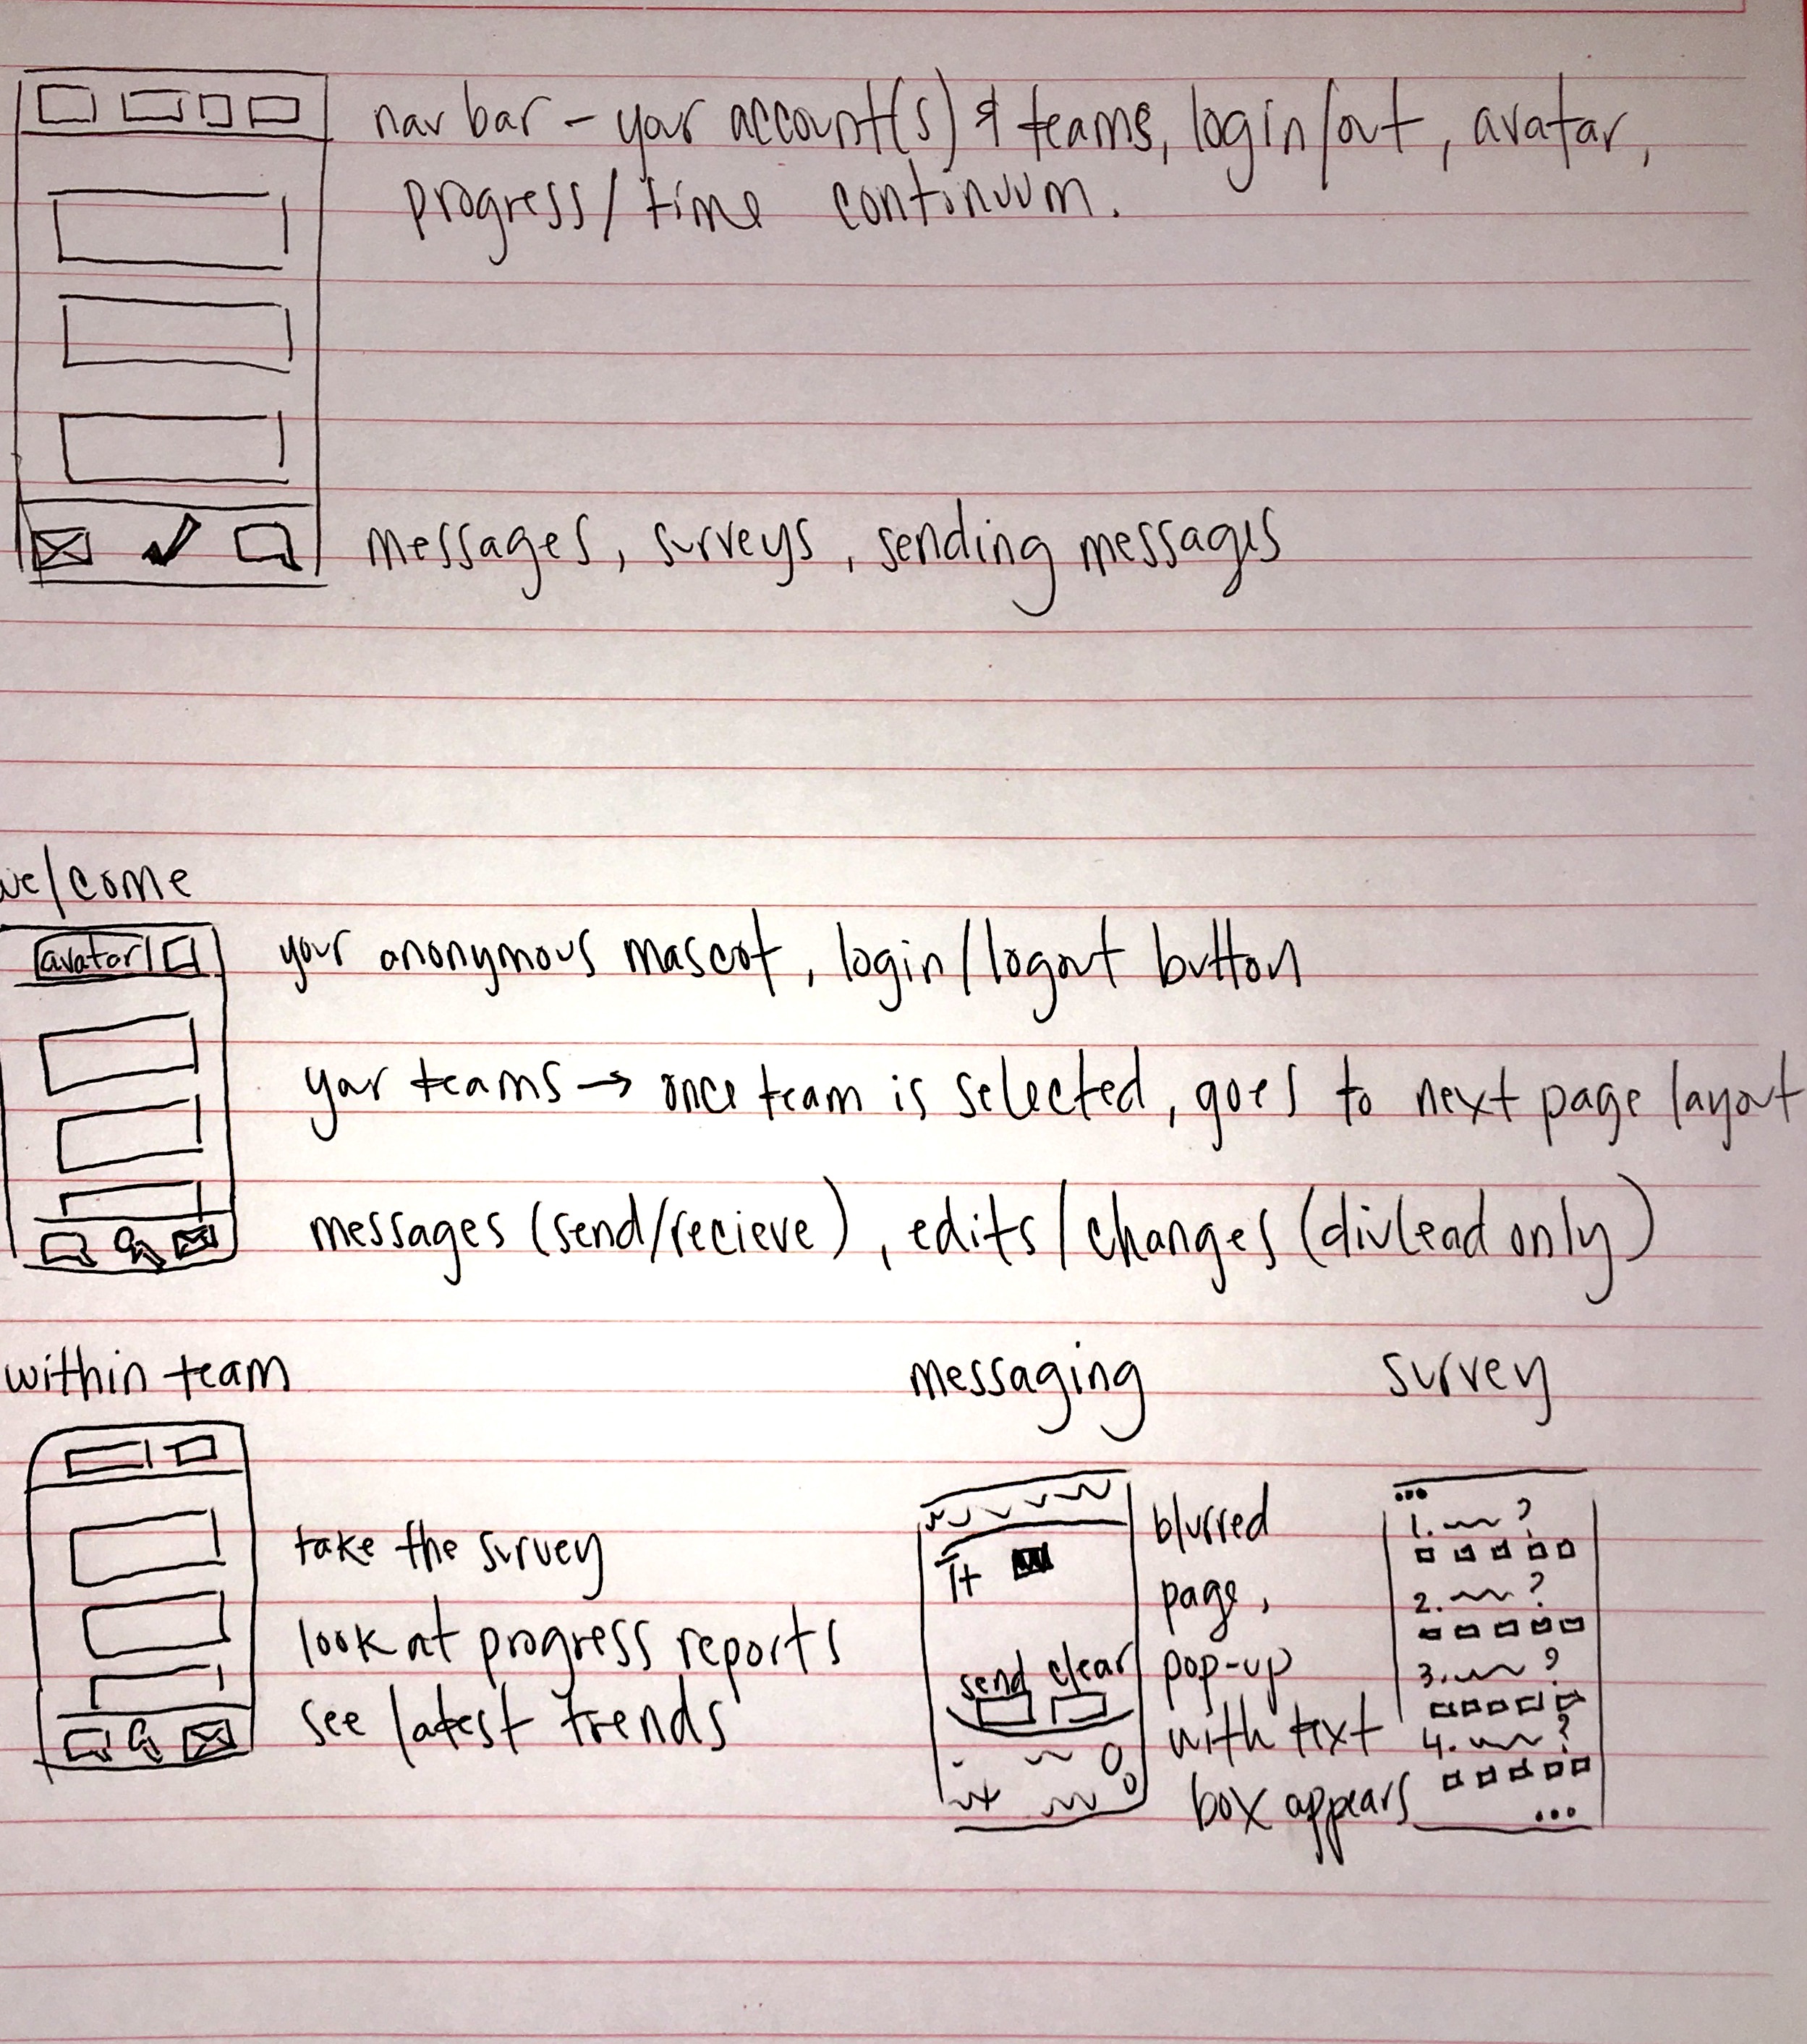 nav bar - your account(s) & teams, login/out, avatar,
progress/time continuum.
messages, surveys, sending messages
welcome
avatar
your anonymous mascot, login/logout button
your teams → once team is selected, goes to next page layout
messages (send/recieve), edits/changes (divlead only)
within team
messaging
survey
take the survey
look at progress reports
see latest trends
send clear
blurred
page,
pop-up
with text
box appears
...
1. ?
2. ?
3. ?
4. ?
...